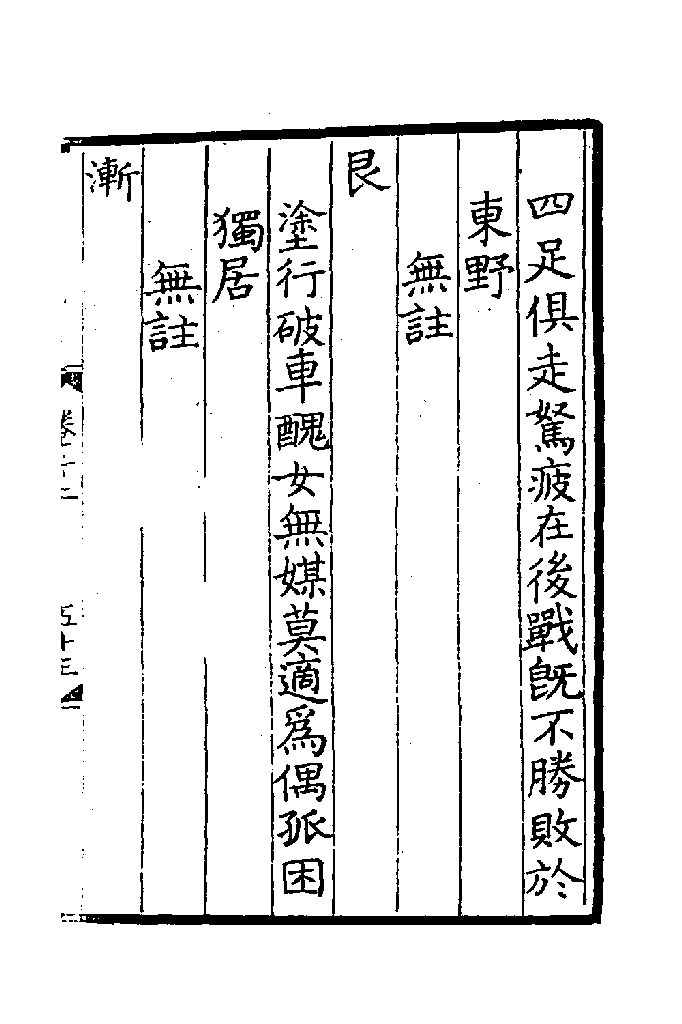 四足俱走駑疲在後戰旣不勝敗於
東野
無註
艮
塗行破車醜女無媒莫適爲偶孤困
獨居
無註
漸
卷十二
五十三